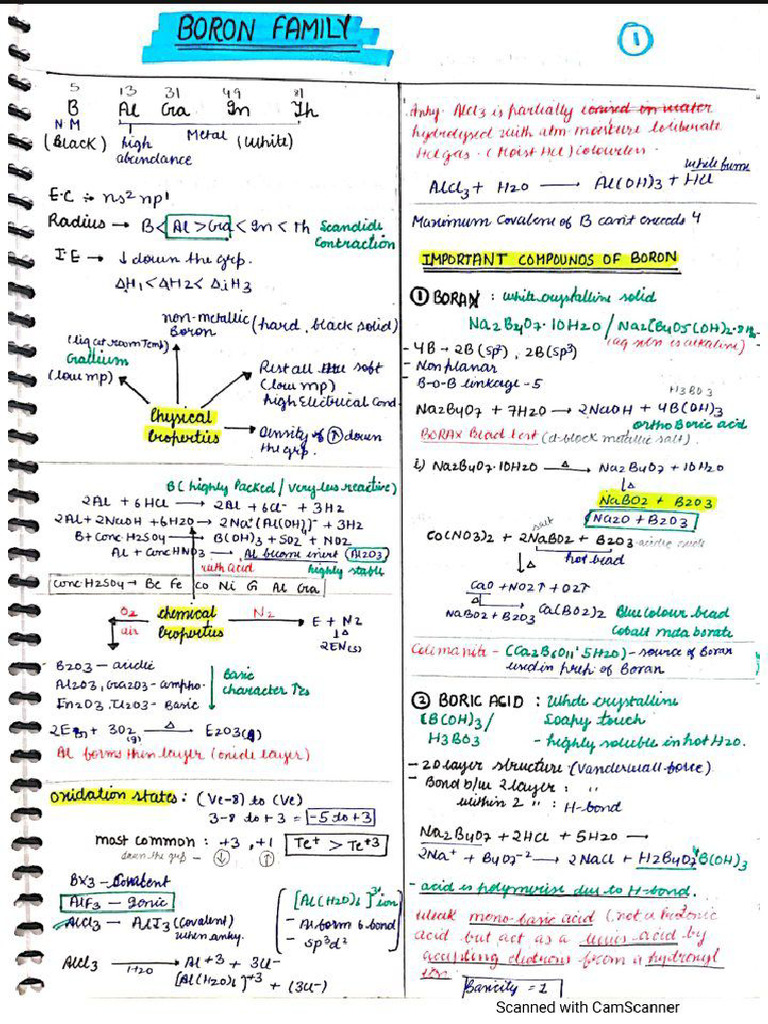 BORON FAMILY
1
5 13 31 49 81
B Al Ga In Th
N·M Metal
(Black) high abundance (White)
E·C :- ns² np¹
Radius → B < Al > Ga < In < Th Scandide Contraction
I·E → ↓ down the grp.
ΔH1 < ΔH2 < ΔiH3
non-metallic Boron (hard, black solid)
(liq at room Temp)
Gallium
(low mp)
Rest all soft
(low mp)
High Electrical Cond
Physical Properties
Density of ↑ down the grp.
B (highly Packed / very less reactive)
2Al + 6HCl → 2Al + 6Cl⁻ + 3H2
2Al + 2NaOH + 6H2O → 2Na⁺[Al(OH)4]⁻ + 3H2
B + Conc·H2SO4 → B(OH)3 + SO2 + NO2
Al + Conc HNO3 → Al become inert (Al2O3)
with acid highly stable
Conc H2SO4 → Be Fe Co Ni Cr Al Ga
O2
air
chemical Properties
N2
E + N2
Δ
2EN(s)
B2O3 — acidic
Al2O3, Ga2O3 - ampho.
In2O3, Tl2O3 - Basic
Basic character
2E + 3O2 (g) Δ→ E2O3(s)
Al forms thin layer (oxide layer)
Oxidation states: (Ve-8) to (Ve)
3-8 to +3 = -5 to +3
most common : +3, +1
down the grp - ↓ ↑
Bx3 - Covalent
AlF3 - Ionic
AlCl3 — AlI3 (Covalent) when anhy.
[Al(H2O)6]³⁺ ion
- Al form 6 bond
- sp³d²
AlCl3 →H2O Al+3 + 3Cl⁻
[Al(H2O)6]+3 + (3Cl⁻)
Anhy. AlCl3 is partially
hydrolysed with atm. moisture to liberate
HCl gas. (Moist HCl) colourless.
white fums
AlCl3 + H2O → Al(OH)3 + HCl
Maximum Covalent of B can't exceeds 4
IMPORTANT COMPOUNDS OF BORON
① BORAX : white crystalline solid
Na2B4O7·10H2O /
(aq soln is alkaline)
- 4B → 2B(sp²), 2B(sp³)
- Non planar
- B-O-B linkage - 5
H3BO3
Na2B4O7 + 7H2O → 2NaOH + 4B(OH)3
ortho Boric acid
BORAX Bead test (d-block metallic salt).
i) Na2B4O7·10H2O Δ→ Na2B4O7 + 10H2O
↓Δ
NaBO2 + B2O3
Na2O + B2O3
salt
Co(NO3)2 + 2NaBO2 + B2O3 - acidic oxide
hot bead
↓Δ
CaO + NO2↑ + O2↑
NaBO2 + B2O3 Ca(BO2)2 Blue colour bead
Cobalt meta borate
Colemanite - (Ca2B6O11·5H2O) - source of Boran
used in prep of Boran
② BORIC ACID : White crystalline
[B(OH)3 / Soapy touch
H3BO3 - highly soluble in hot H2O.
- 2D layer structure (Vanderwall force)
- Bond b/w 2 layer : "
within 2 " : H-bond
Na2B4O7 + 2HCl + 5H2O →
2Na⁺ + B4O7⁻² → 2NaCl + H2B4O7 B(OH)3
- acid is polymerise due to H-bond.
weak mono-basic acid (not a protonic
acid but act as a lewis acid by
accepting electrons from a hydroxyl
ion.
Basicity = 1
Scanned with CamScanner